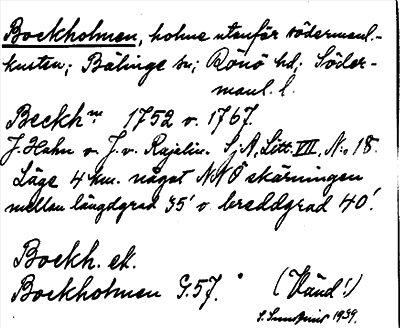 Bockholmen, holme utanför södermanl.-
kusten; Bälinge sn; Rönö hd; Söder-
manl. l.
Bockh:n 1752 o. 1767.
J. Hahn o. J. v. Rajelin. S, A, Litt. VII, N:o 18.
Läge 4 km. något NNO skärningen
mellan längdgrad 35' o. breddgrad 40'.
Bockh. ek.
Bockholmen G.57.
(Vänd!)
1939.